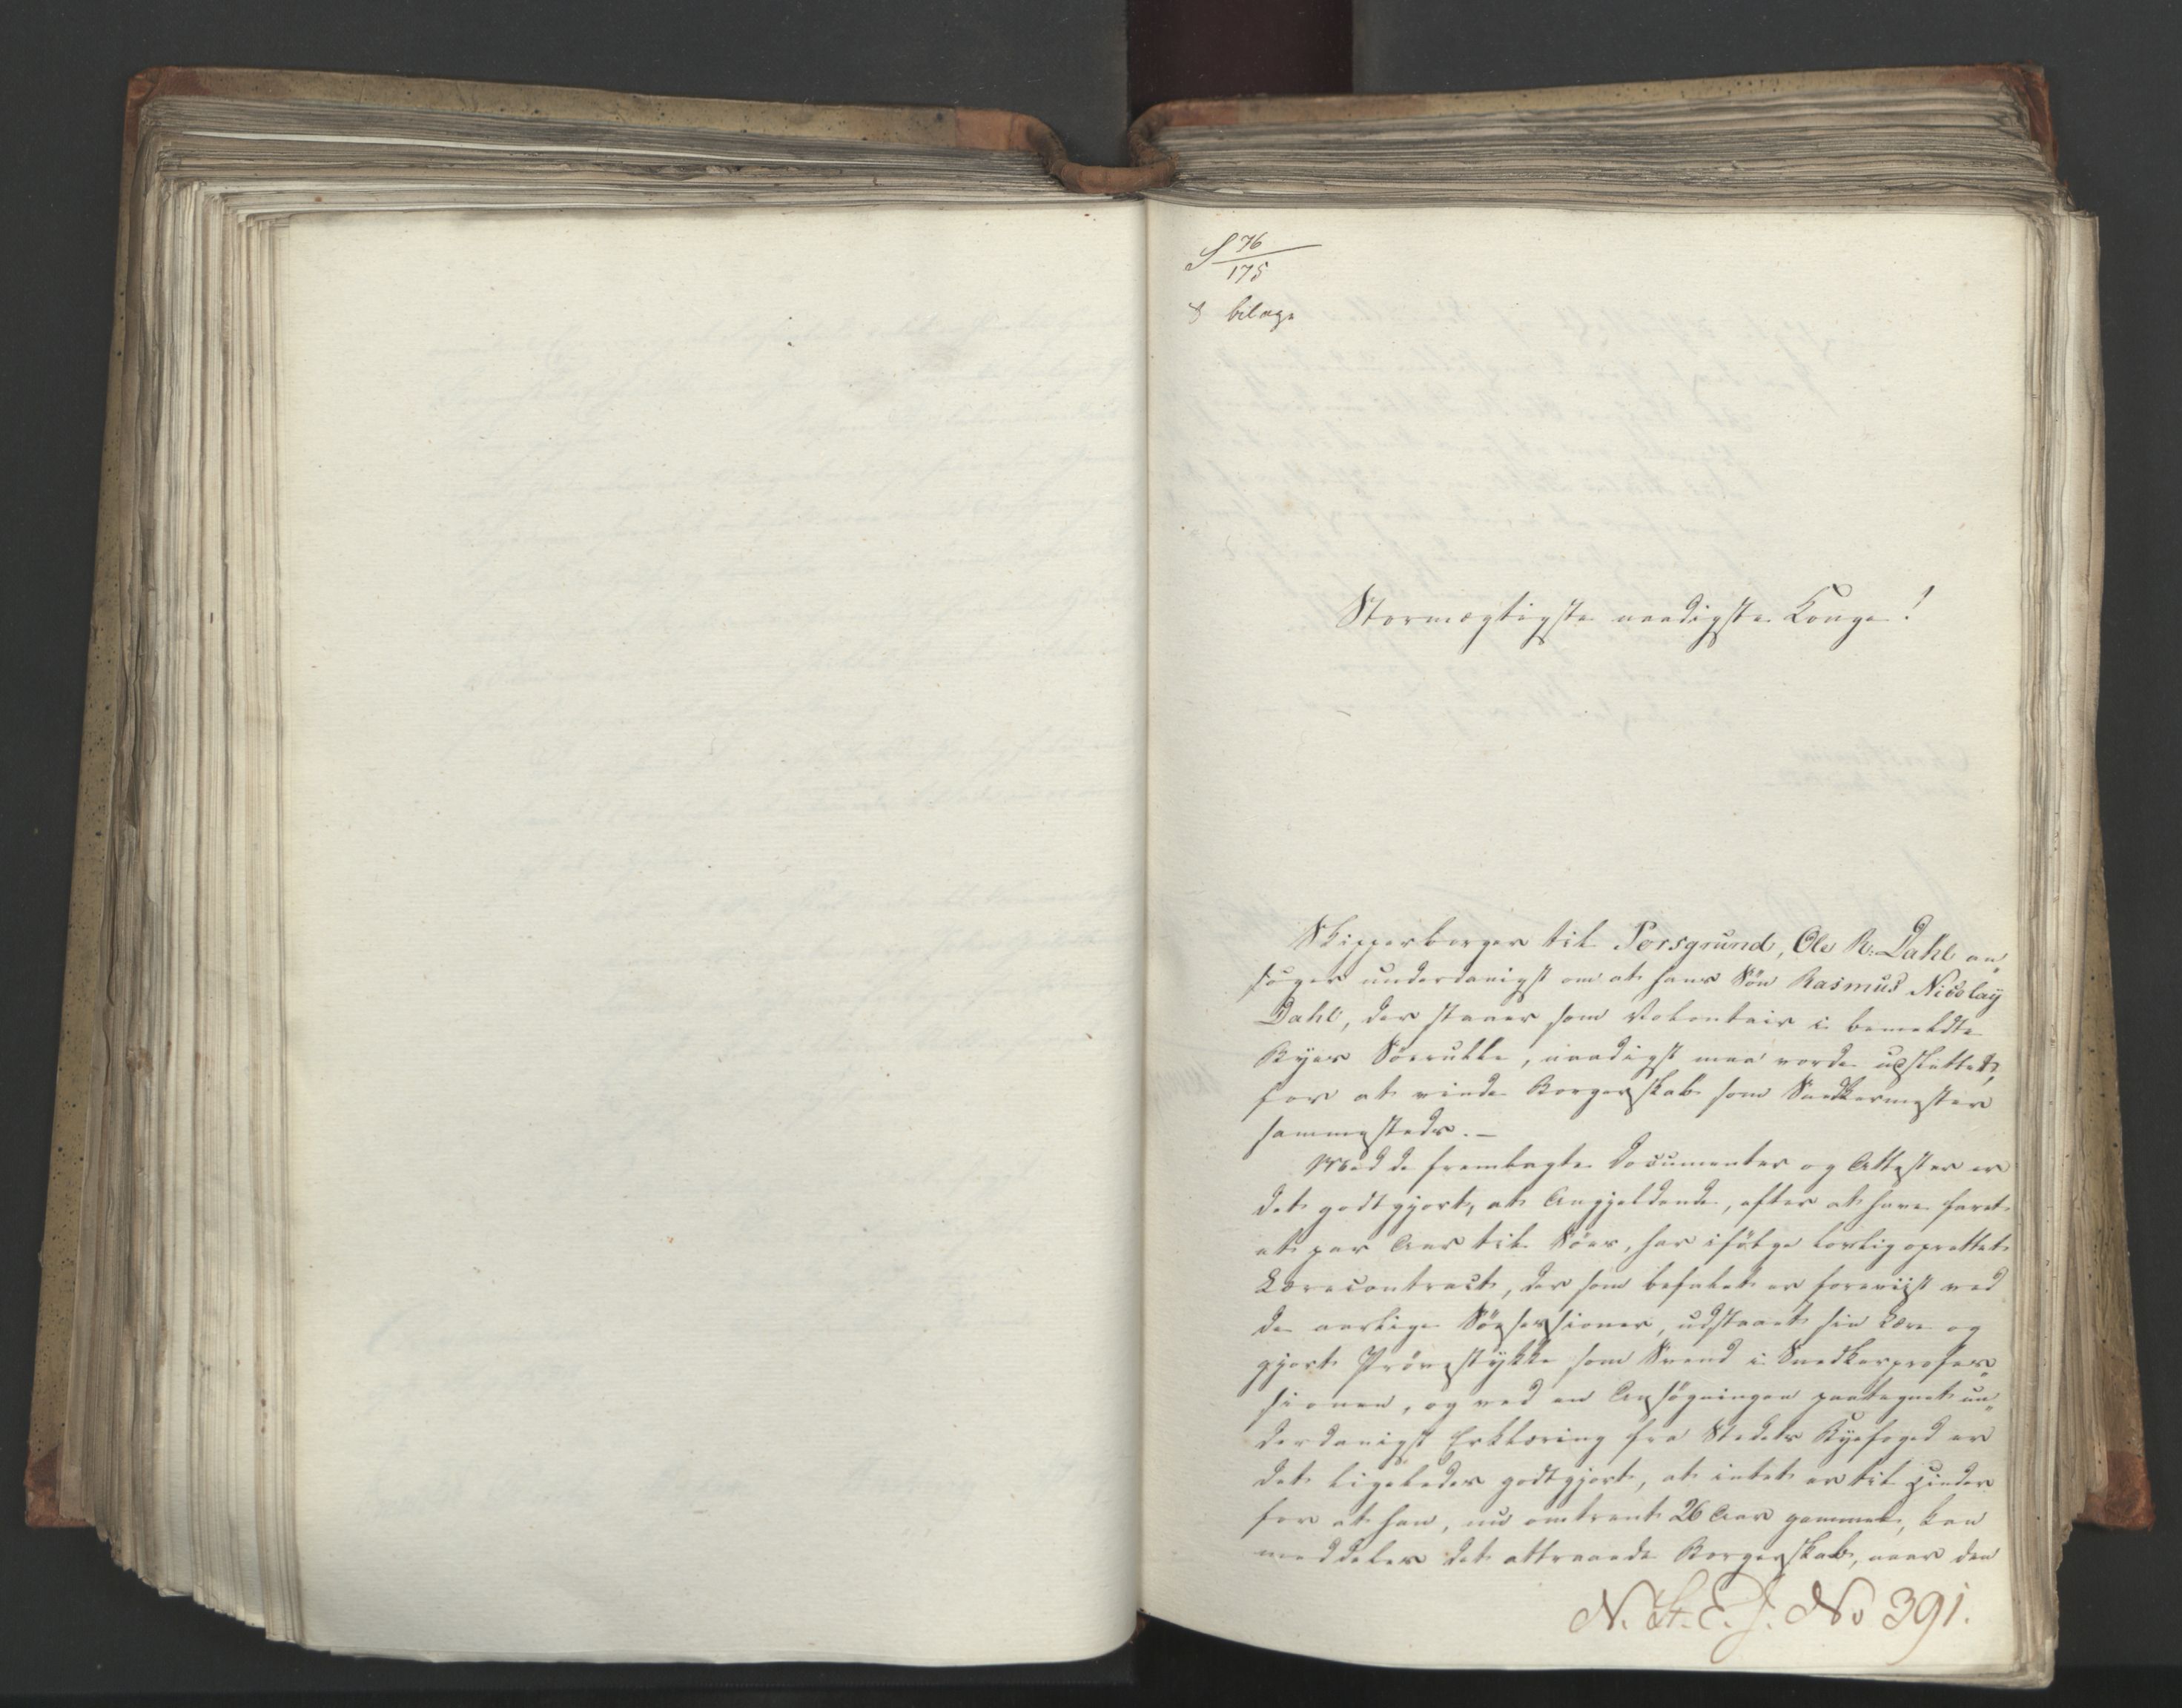 S 76/175
8 bilage
Stormægtigste naadigste Konge!
Skipperborger til Porsgrund, Ole R. Dahl an„
söger underdanigst om at hans Sön Rasmus Nicolaÿ
Dahl, der staaer som Volontair i bemeldte
Byes Sörrulle, naadigst maa vorde udslettet,
for at vinde Borgerskab som Snedkermester
sammesteds. –
Med de fremlagte Documenter og Attester er
det godtgjort, at Angjeldende, efter at have faret
et par Aar til Söes, har ifölge lovlig oprettet
Lærecontract, der som befalet er foreviist ved
de aarlige Söesessioner, udstaaet sin Lære og
gjort Prövestÿkke som Svend i Snedkerprofes„
sionen, og ved en Ansögningen paategnet un„
derdanigst Erklæring fra Stedets Bÿefoged er
det ligeledes godtgjort, at intet er til Hinder
for at han, nu omtrent 26 Aar gammel, kan
meddeles det attraaede Borgerskab, naar den
N. St. E. J. No 391.